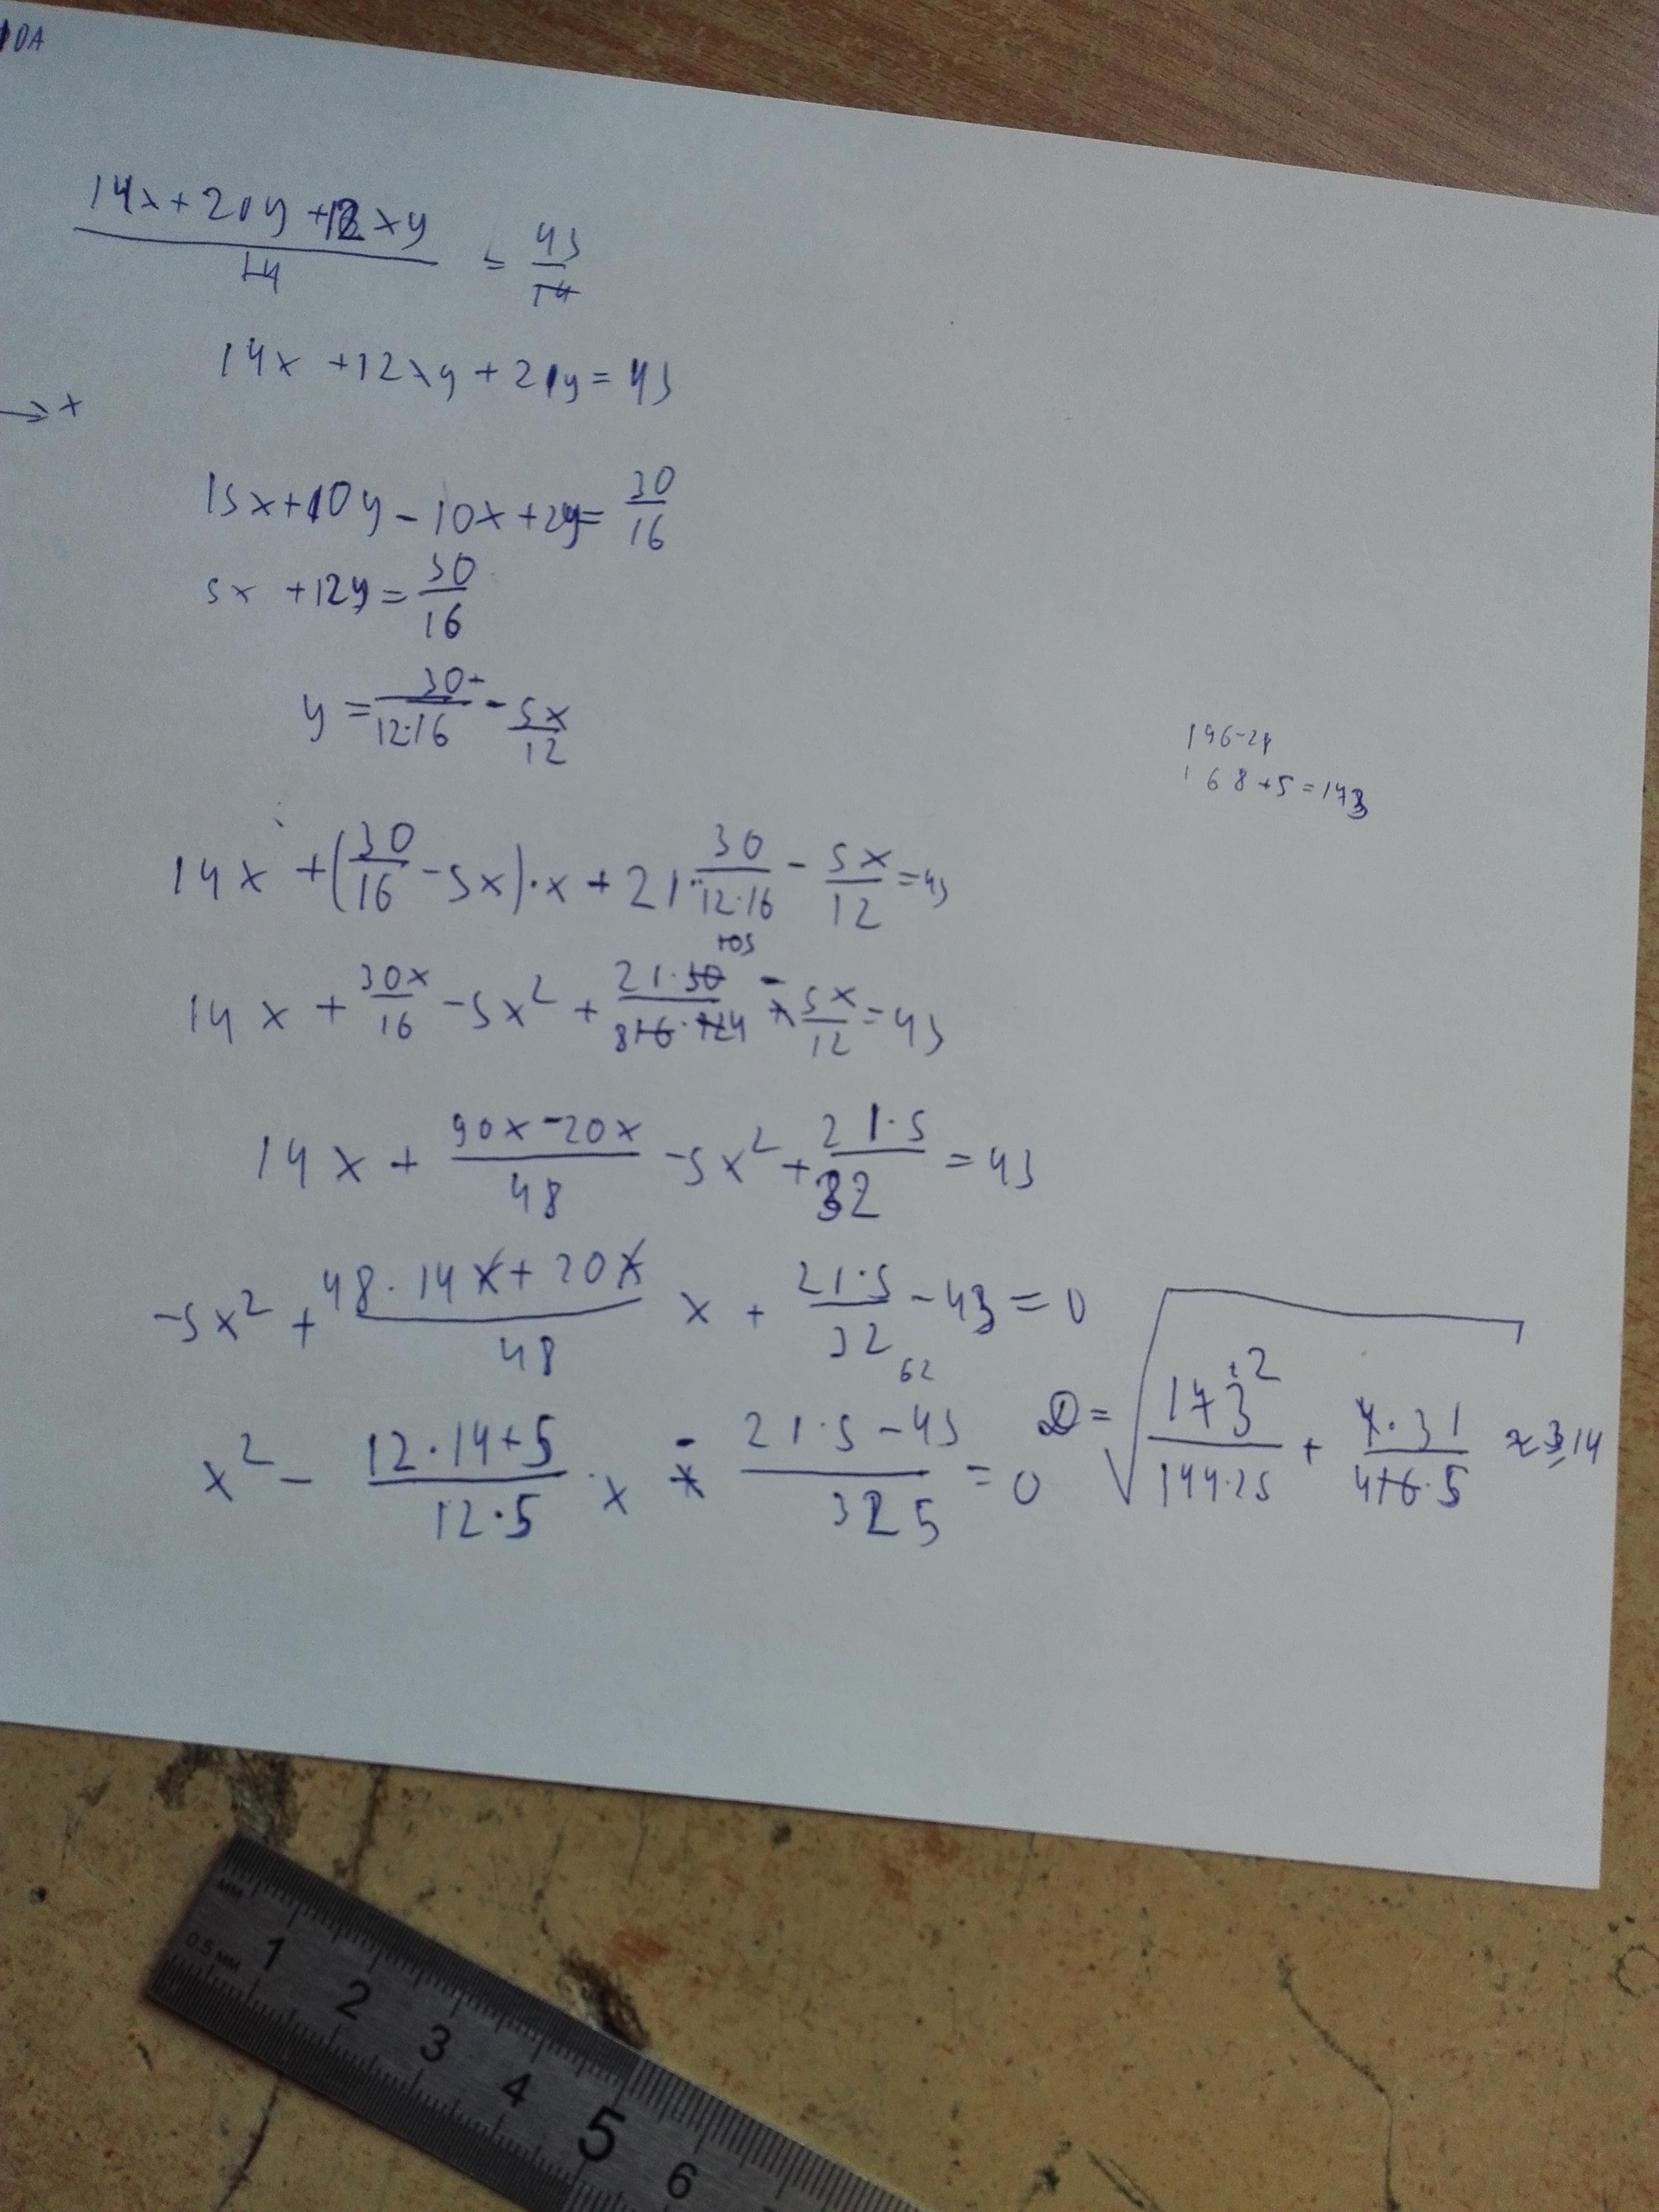 10A
14x+21y+12xy / 14 = 43/14
14x+12xy+21y=43
→x
15x+10y-10x+2y=30/16
5x+12y=30/16
y=30/12·16-5x/12
196-28
168+5=173
14x+(30/16-5x)·x+21·30/12·16-5x/12=43
14x+30x/16-5x²+21·30/816·124-5x/12=43
105
14x+90x-20x/48-5x²+21·5/32=43
-5x²+48·14x+20x/48 x+21·5/32-43=0
62
x²-12·14+5/12·5 x-21·5-43/325=0
D=√173²/144·25+4·31/416·5≈3,14
мм
0.5 мм
1 2 3 4 5 6